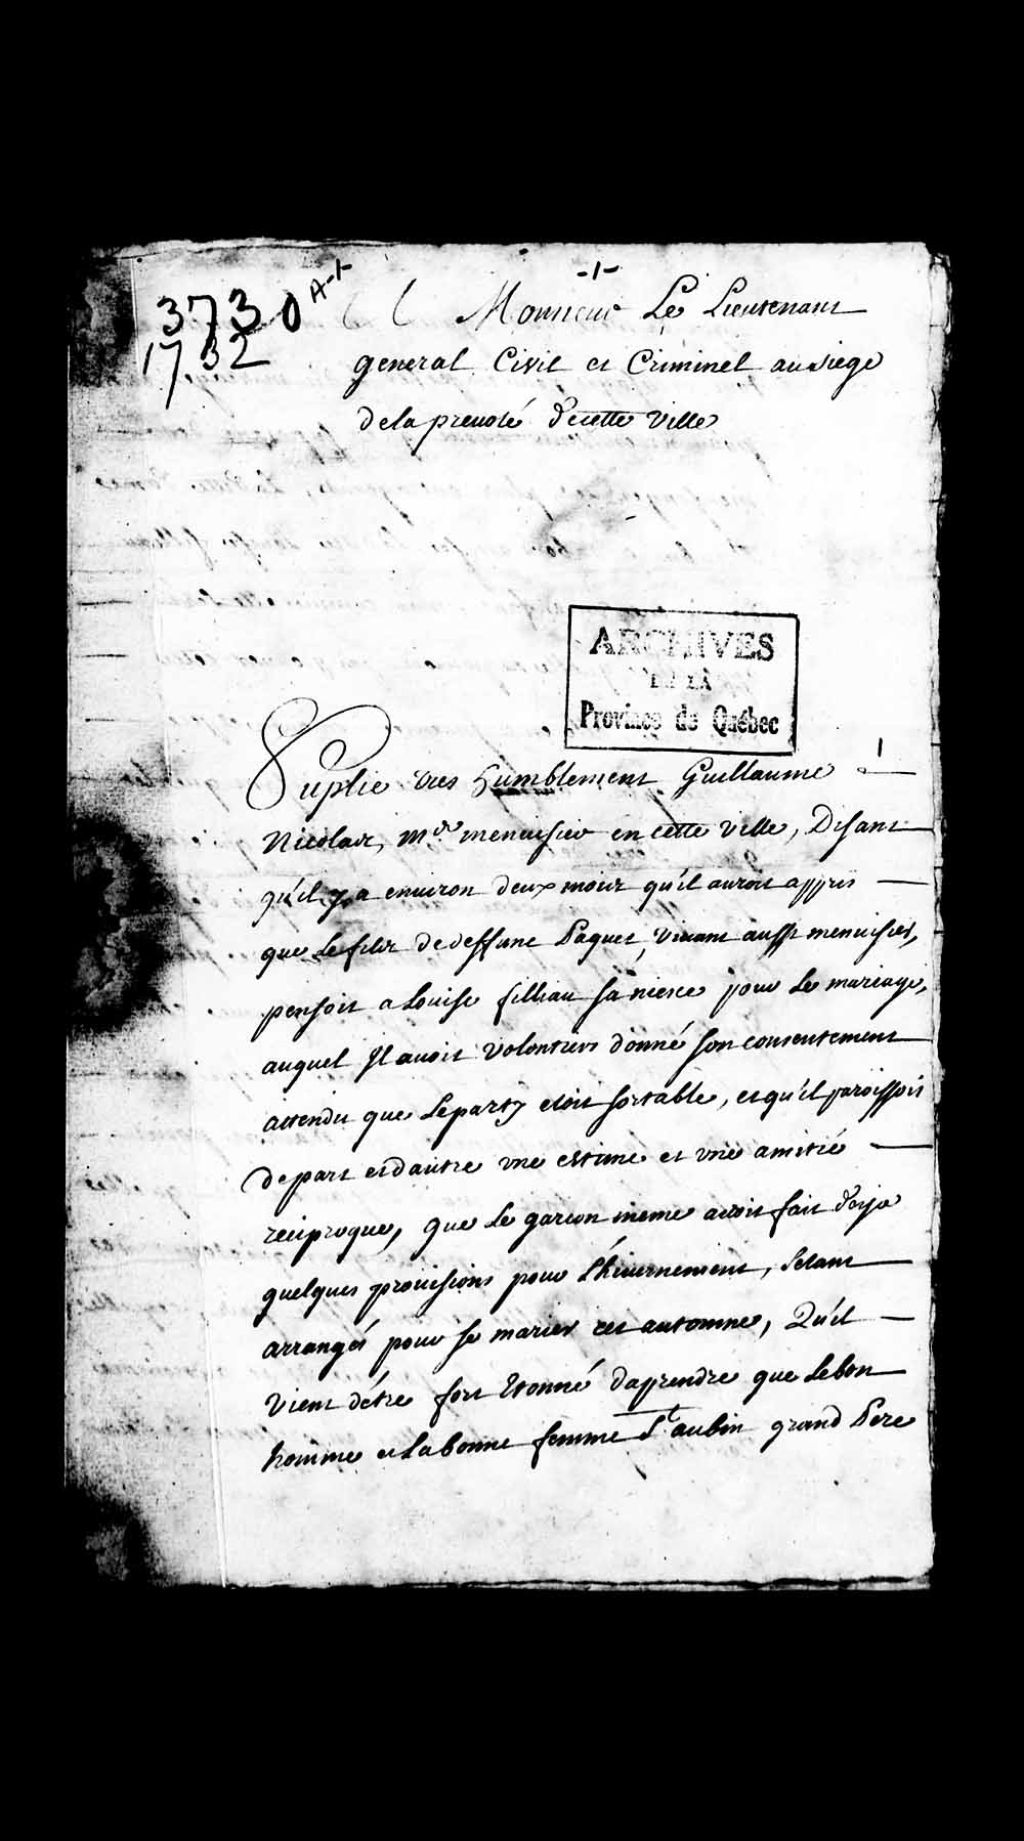 3730 A-1
1732
-1-
A Monsieur Le Lieutenant
general Civil et Criminel au siege
de la prevoté de cette Ville
ARCHIVES
DE LA
Province de Québec
Suplie tres humblement Guillaume
Nicolas, md menuisier en cette ville, Disant
qu'il y a environ deux mois qu'il auroit appris
que le fils de deffunt Paquet, vivant aussi menuisier,
pensoit a Louise filliau sa niesce pour le mariage,
auquel Il avoit volontiers donné son consentement
attendu que le party etoit sortable, et qu'il paroissoit
de part et d'autre une estime et une amitié
reciproque, que le garcon meme avoit fait deja
quelques provisions pour l'hivernement, setant
arrangés pour se marier cet automne, Qu'il
vient d'étre fort Etonné d'apprendre que le bon
homme et la bonne femme St aubin grand Pere